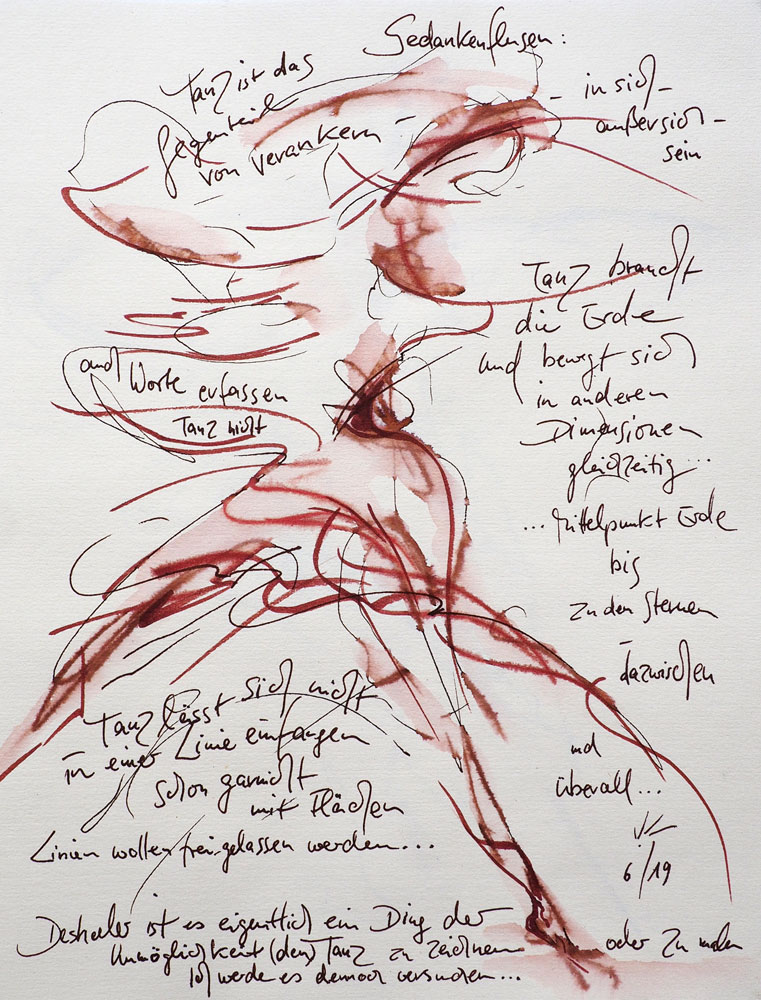 Gedankenflusen:
Tanz ist das
Gegenteil
von verankern –
– in sich –
außersich –
sein
Tanz braucht
die Erde
und bewegt sich
in anderen
Dimensionen
gleichzeitig...
...Mittelpunkt Erde
bis
zu den Sternen
dazwischen
und
überall...
6/19
und Worte erfassen
Tanz nicht
Tanz lässt sich nicht
in einer Linie einfangen
schon garnicht
mit Flächen
Linien wollen frei-gelassen werden...
Deshalb ist es eigentlich ein Ding der
Unmöglichkeit (den) Tanz zu zeichnen
oder zu malen
Ich werde es dennoch versuchen...